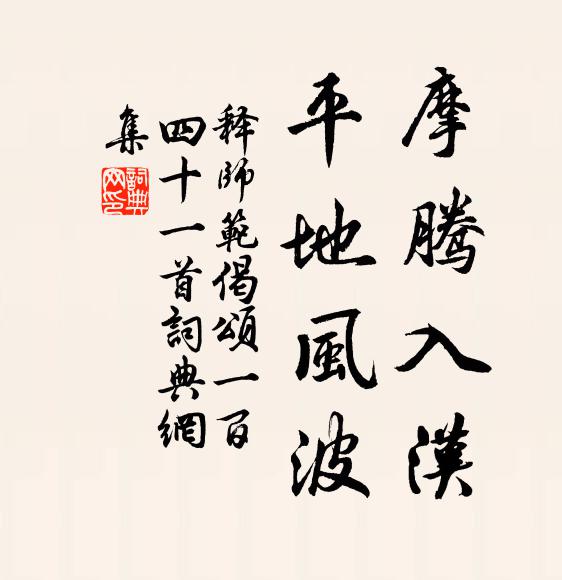 摩騰入漢
平地風波
释師範偈頌一百
四十一首詞典網
集
詞典
网印